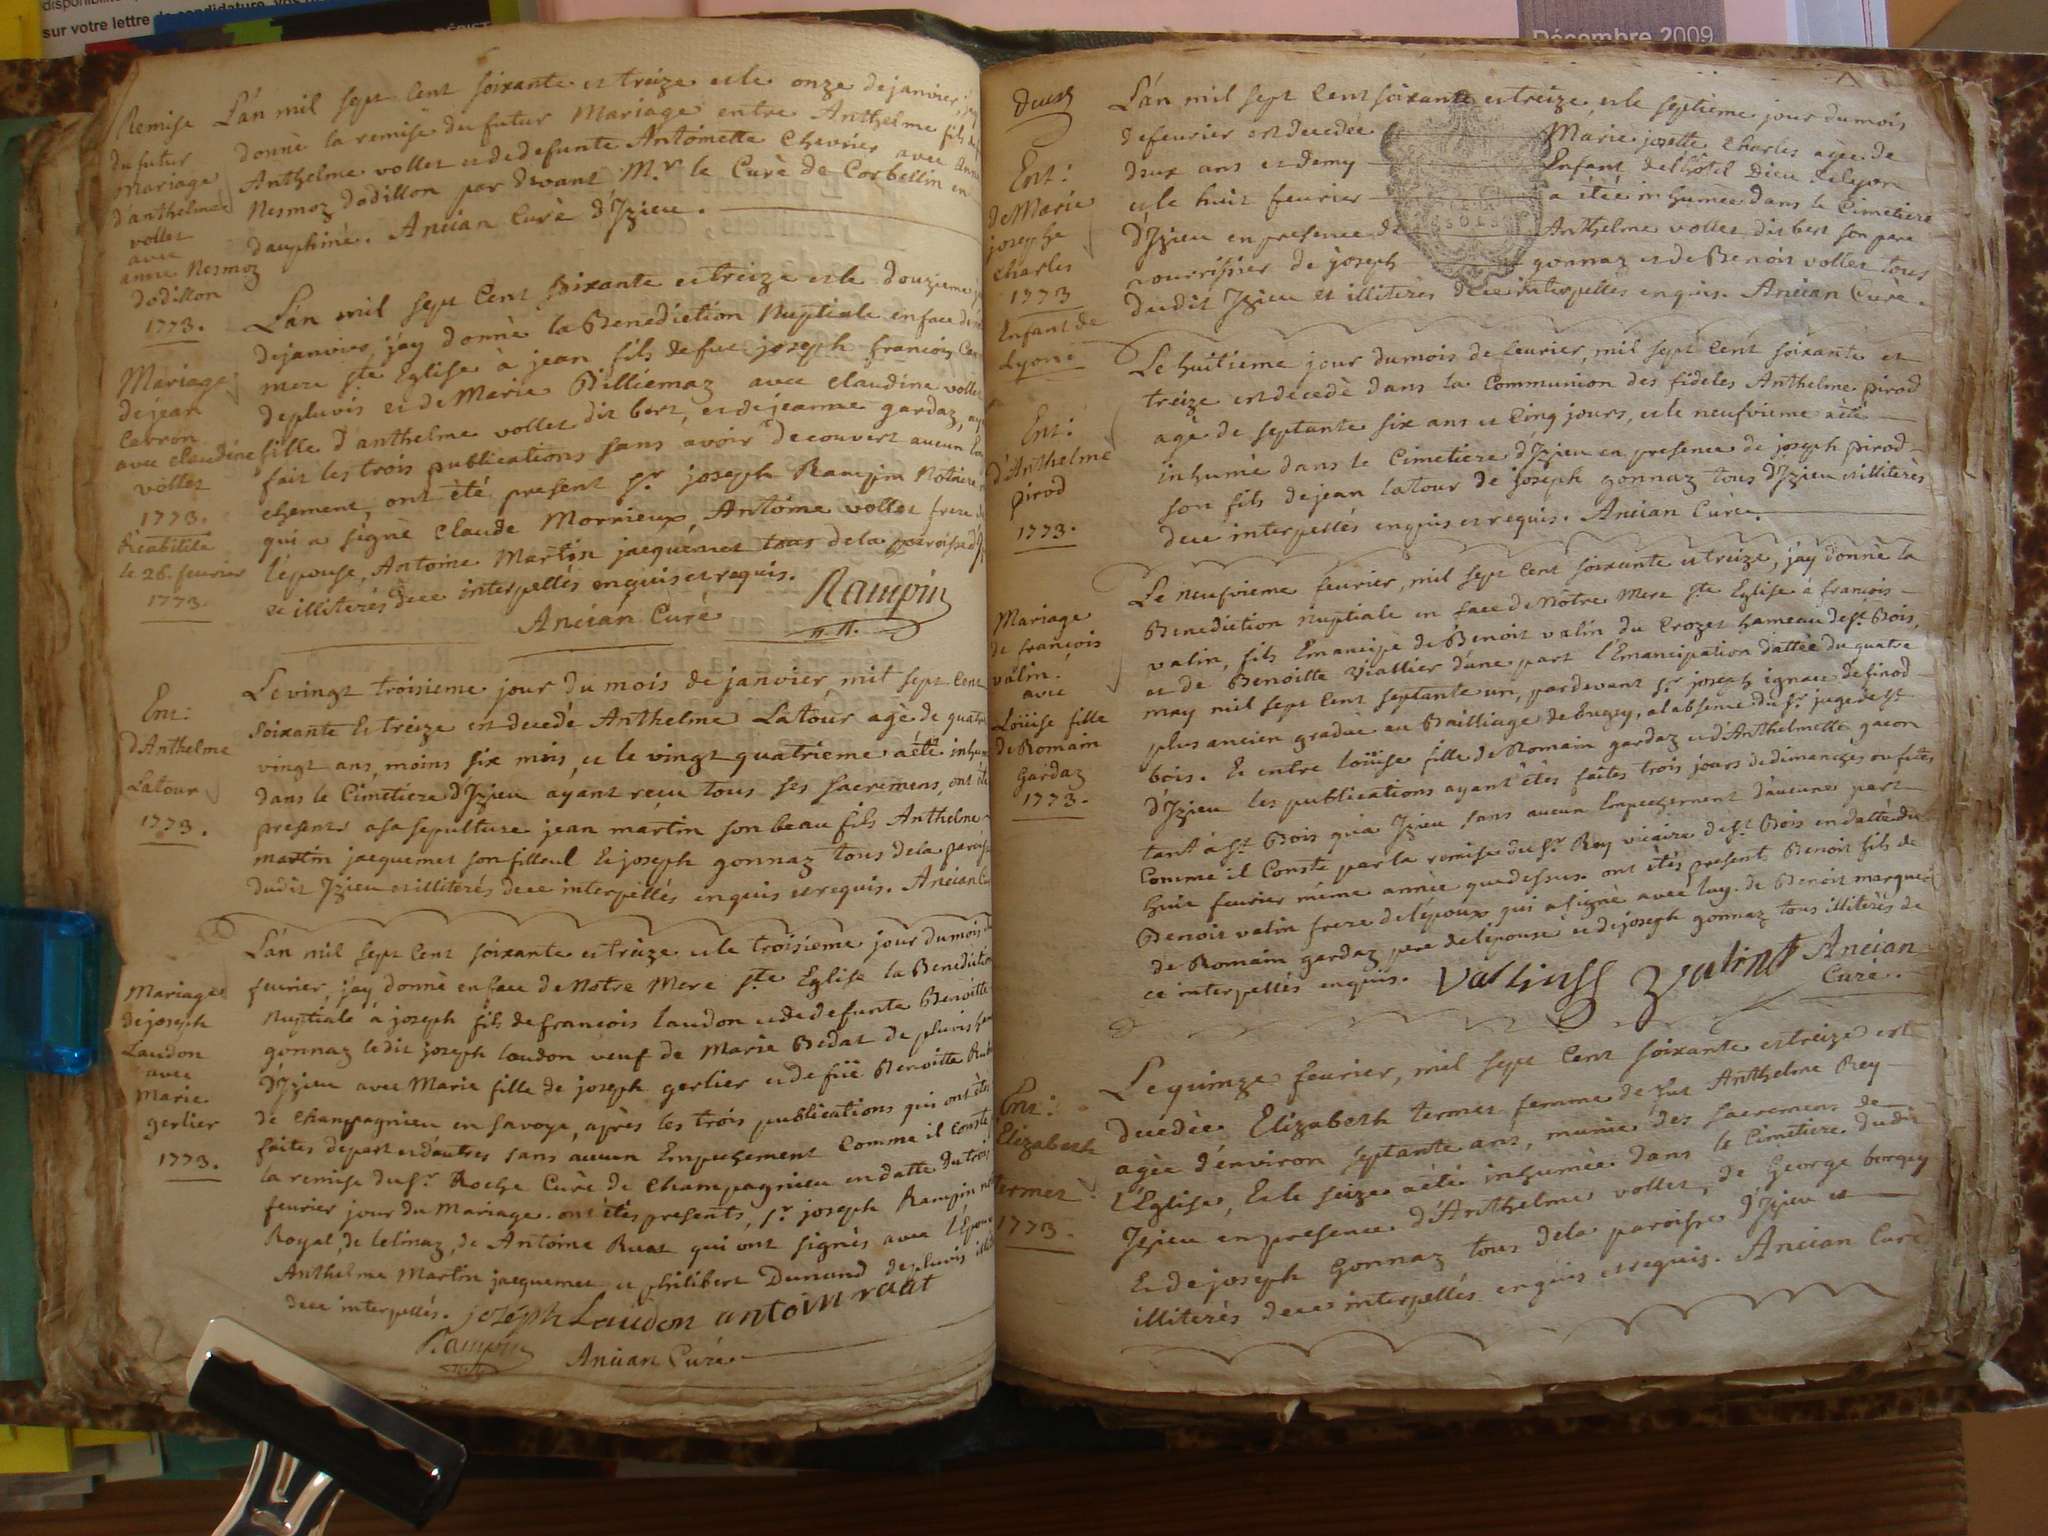 sur votre lettre de candidature, vos
Décembre 2009
Remise
du futur
mariage
d'anthelme
vollet
avec
anne Nesmoz
dodillon
1773.
L'an mil sept cent soixante et treize et le onze de janvier, jay
donné la remise du futur Mariage entre Anthelme fils d'
Anthelme vollet et de defunte Antoinette Chevrier avec Anne
Nesmoz dodillon par devant Mr. le Curé de Corbellin en
dauphiné. Ancian Curé d'Izieu.
Mariage
de jean
Carron
avec claudine
vollet
1773.
Réabilité
le 26. fevrier
1773.
L'an mil sept Cent soixante et treize et le douzieme
de janvier jay donné la Benediction Nuptiale en face de
mere ste Eglise à jean fils de feu joseph françois Car
de pluvis et de Marie Billiemaz avec claudine vollet
fille d'anthelme vollet dit bert, et de jeanne gardaz, ay
fait les trois publications sans avoir decouvert aucun Em
chement, ont été present sr. joseph Rampin Notaire
qui a signé Claude Morrieux, Antoine vollet frere de
l'épouse, Antoine Martin jacquemet tous de la paroisse d'
et illiterés de ce interpellés enquis et requis. Rampin
Ancian Curé
Ent:
d'Anthelme
Latour
1773.
Le vingt troisieme jour du mois de janvier mil sept Cent
soixante Et treize est decedé Anthelme Latour agé de quatre
vingt ans, moins six mois, et le vingt quatrieme a été inhum
dans le Cimetiere d'Izieu ayant reçu tous ses sacremens, ont été
presents a sa sepulture jean martin son beau fils Anthelme
martin jacquemet son filleul Et joseph gonnaz tous de la parois
dudit Izieu et illiterés de ce interpellés enquis et requis. Ancian Cu
Mariage
de joseph
Laudon
avec
Marie
gerlier
1773.
L'an mil sept Cent soixante et treize et le troisieme jour du mois de
fevrier, j'ay donné en face de Notre Mere ste Eglise la Benediction
Nuptiale à joseph fils de françois Laudon et de defunte Benoitte
gonnaz ledit joseph laudon veuf de Marie Bedat de pluvis
d'Izieu avec Marie fille de joseph gerlier et de fue Benoitte
de Champagnieu en savoye, après les trois publications qui ont été
faites de part et d'autres sans aucun Empechement Comme il Conste
la remise du sr. Roche Curé de Champagnieu en datte du trois
fevrier jour du Mariage. ont étés presents, sr. joseph Rampin
Royal, de lelinaz, de Antoine Ruat qui ont signés avec l'Epoux
Anthelme Martin jacquemet et philibert Dunand de pluvis
de ce interpellés. joseph Laudon antoin raat
Rampin Ancian Curé
deces
Ent:
de Marie
josephe
charles
1773
Enfant de
Lyon
L'an mil sept Cent soixante et treize et le septieme jour du mois
de fevrier est decedée Marie josette Charles agée de
deux ans et demy Enfant de l'hôtel Dieu de Lyon
et le huit fevrier a étée inhumée dans le Cimetiere
d'Izieu en presence de Anthelme vollet dit bert son pere
nourrissier de joseph gonnaz et de Benoit vollet tous
dudit Izieu et illiterés de ce interpellés enquis. Ancian Curé.
Ent:
d'Anthelme
pirod
1773.
Le huitieme jour du mois de fevrier, mil sept Cent soixante et
treize est decedé dans la Communion des fideles Anthelme pirod
agé de septante six ans et Cinq jours, et le neufvieme a été
inhumé dans le Cimetiere d'Izieu en presence de joseph pirod
son fils de jean latour de joseph gonnaz tous d'Izieu et illiterés
de ce interpellés enquis et requis. Ancian Curé.
Mariage
de françois
valin.
avec
Loüise fille
de Romain
Gardaz
1773.
Le neufvieme fevrier, mil sept Cent soixante et treize, j'ay donné la
Benediction Nuptiale en face de Nôtre Mere ste Eglise à françois
valin, fils Emancipé de Benoit valin du Crozet hameau de st. Bois,
et de Benoitte Viallier d'une part l'Emancipation dattée du quatre
may mil sept Cent septante un, par devant sr. joseph ignace de Sirod
plus ancien gradué au Bailliage de Bugey, al absence du sr. juge de st
bois. Et entre loüise fille de Romain gardaz et d'Anthelmette gacon
d'Izieu les publications ayant étés faites trois jours de dimanches ou fêtes
tant à st. Bois qu'a Izieu sans aucun Empechement d'aucune part
Comme il Conste par la remise du sr. Rey vicaire de st. Bois en datte du
huit fevrier même année que dessus. ont étés presents Benoit fils de
Benoit valin frere de l'époux qui a signé avec luy. de Benoit marque
de Romain gardaz pere de l'épouse et de joseph gonnaz tous illiterés de
ce interpellés enquis. Ancian
Curé.
Ent:
Elizabeth
termet
1773.
Le quinze fevrier, mil sept Cent soixante et treize est
decedée Elizabeth termet femme de fut Anthelme Rey
agée d'environ septante ans, munie des sacremens de
l'Eglise, Et le seize a été inhumée dans le Cimetiere dudit
Izieu en presence d'Anthelme vollet, de George borgey
Et de joseph Gonnaz tous de la paroisse d'Izieu et
illiterés de ce interpellés enquis et requis. Ancian Curé